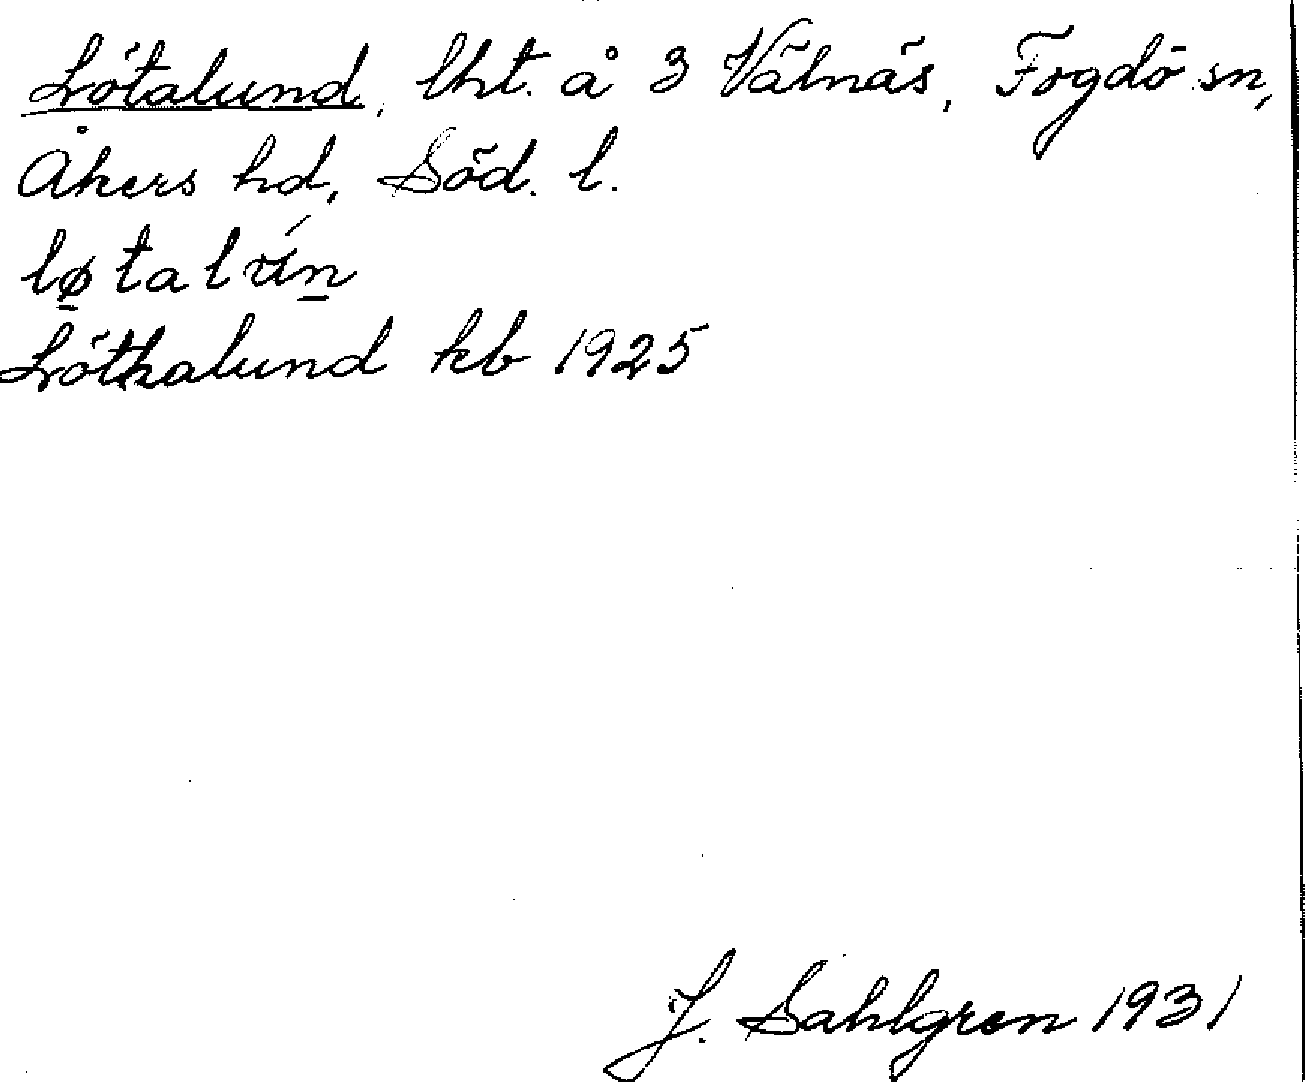 Lötalund, lht. å 3 Välnäs, Fogdö sn,
Åkers hd, Söd. l.
Löthalund kb 1925
J. Sahlgren 1931